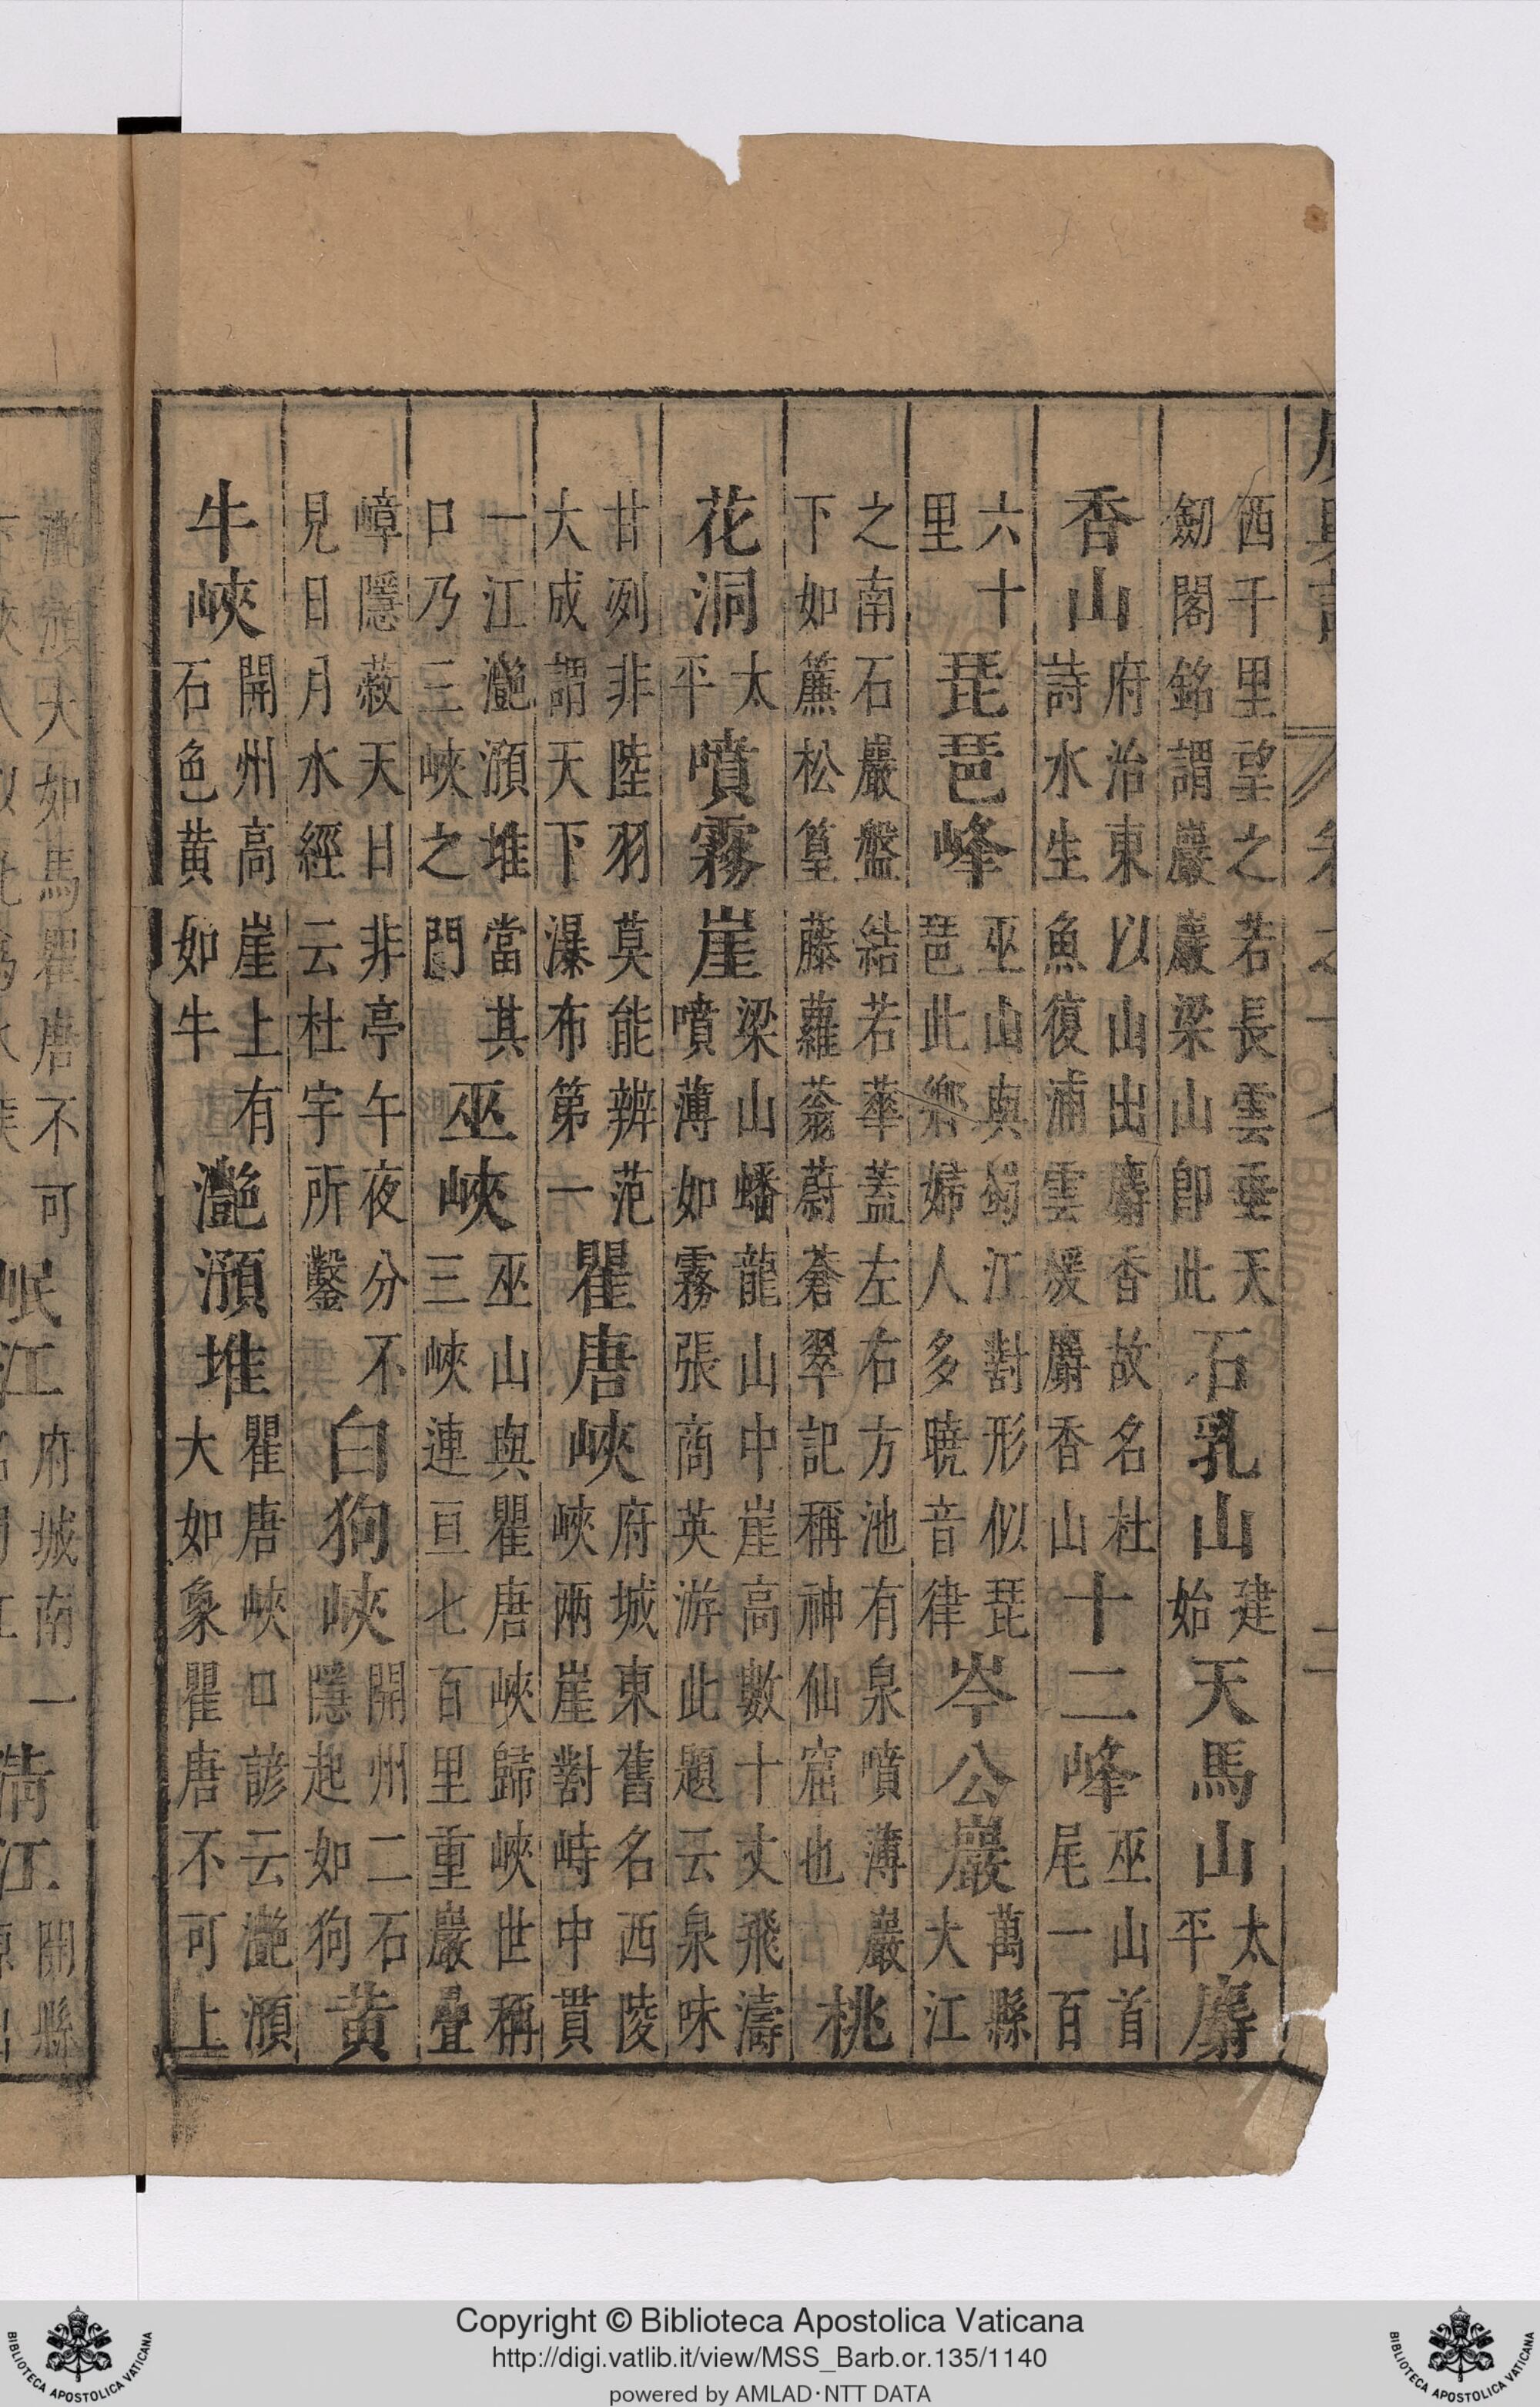 西千里望之若長雲垂天
劒閣銘謂巖巖梁山卽此
石乳山
建
始
天馬山
太
平
麝
香山
府治東以山出麝香故名杜
詩水生魚復浦雲煖麝香山
十二峰
巫山首
尾一百
六十
里
琵琶峰
巫山與蜀江對形似琵
琶此鄉婦人多曉音律
岑公巖
萬縣
大江
之南石巖盤結若華蓋左右方池有泉噴薄巖
下如簾松篁藤蘿蓊蔚蒼翠記稱神仙窟也
桃
花洞
太
平
噴霧崖
梁山蟠龍山中崖高數十丈飛濤
噴薄如霧張商英游此題云泉味
甘冽非陸羽莫能辨范
大成謂天下瀑布第一
瞿唐峽
府城東舊名西陵
峽兩崖對峙中貫
一江灔澦堆當其
口乃三峽之門
巫峽
巫山與瞿唐峽歸峽世稱
三峽連亘七百里重巖疊
嶂隱蔽天日非亭午夜分不
見日月水經云杜宇所鑿
白狗峽
開州二石
隱起如狗
黄
牛峽
開州高崖上有
石色黄如牛
灔澦堆
瞿唐峽口諺云灔澦
大如象瞿唐不可上
灔澦大如馬瞿唐不可
岷江
府城南一
清江
開縣
Copyright © Biblioteca Apostolica Vaticana
http://digi.vatlib.it/view/MSS_Barb.or.135/1140
powered by AMLAD·NTT DATA
BIBLIOTECA APOSTOLICA VATICANA
BIBLIOTECA APOSTOLICA VATICANA